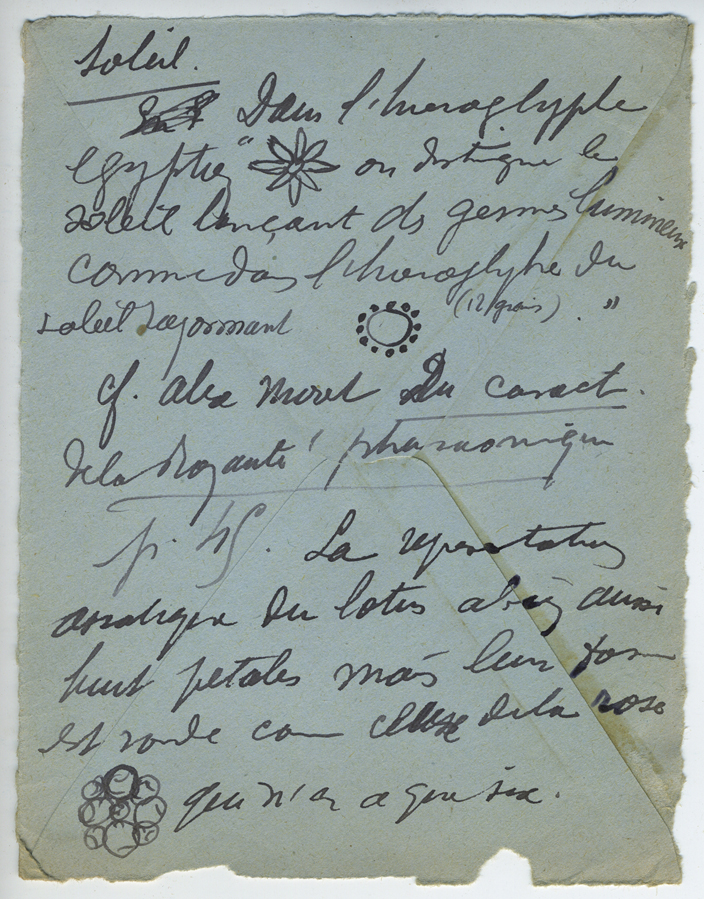 Soleil.
Dans l'hieroglyphe
Egyptien " on distingue le
soleil lançant des germes lumineux
comme dans l'hieroglyphe du
soleil rayonnant (12 grains). "
cf. Alex Moret Du caract.
de la Royauté pharaonique
p. 45. La representation
asiatique du lotus a bien aussi
huit petales mais leur forme
est ronde com celle de la rose
qui n'en a que six.